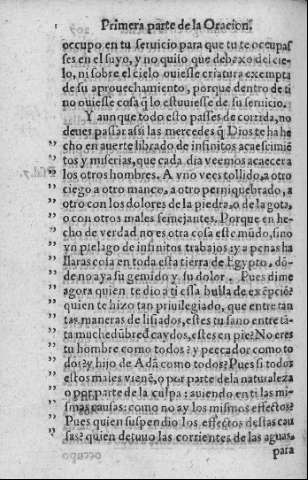 Primera parte de la Oracion.
occupo en tu seruicio para que tu te occupas
ses en el suyo, y no quiso que debaxo del cie-
lo, ni sobre el cielo ouiesse criatura exempta
de su aprouechamiento, porque dentro de ti
no ouiesse cosa q̃ lo estuuiesse de su seruicio.
Y aunque todo esto passes de corrida, no
deues passar assi las mercedes q̃ Dios te ha he
cho en auerte librado de infinitos acaescimiẽ
tos y miserias, que cada dia veemos acaecer a
los otros hombres. A vno vees tollido, a otro
ciego a otro manco, a otro perniquebrado, a
otro con los dolores de la piedra, o de la gota,
o con otros males semejantes. Porque en he-
cho de verdad no es otra cosa este mũdo, sino
vn pielago de infinitos trabajos: y a penas ha
llaras cosa en toda esta tierra de Egypto, dõ-
de no aya su gemido y su dolor. Pues dime
agora quien te dio a ti essa bulla de exẽpciõ?
quien te hizo tan priuilegiado, que entre tan
tas maneras de lisiados, estes tu sano entre tã-
ta muchedũbre de caydos, estes en pie? No eres
tu hombre como todos? y peccador como to
dos? y hijo de Adã como todos? Pues si todos
estos males vienẽ, o por parte de la naturaleza
o por parte de la culpa: auiendo en ti las mi-
smas causas: como no ay los mismos effectos?
Pues quien suspendio los effectos destas cau
sas? quien detuuo las corrientes de las aguas,
para